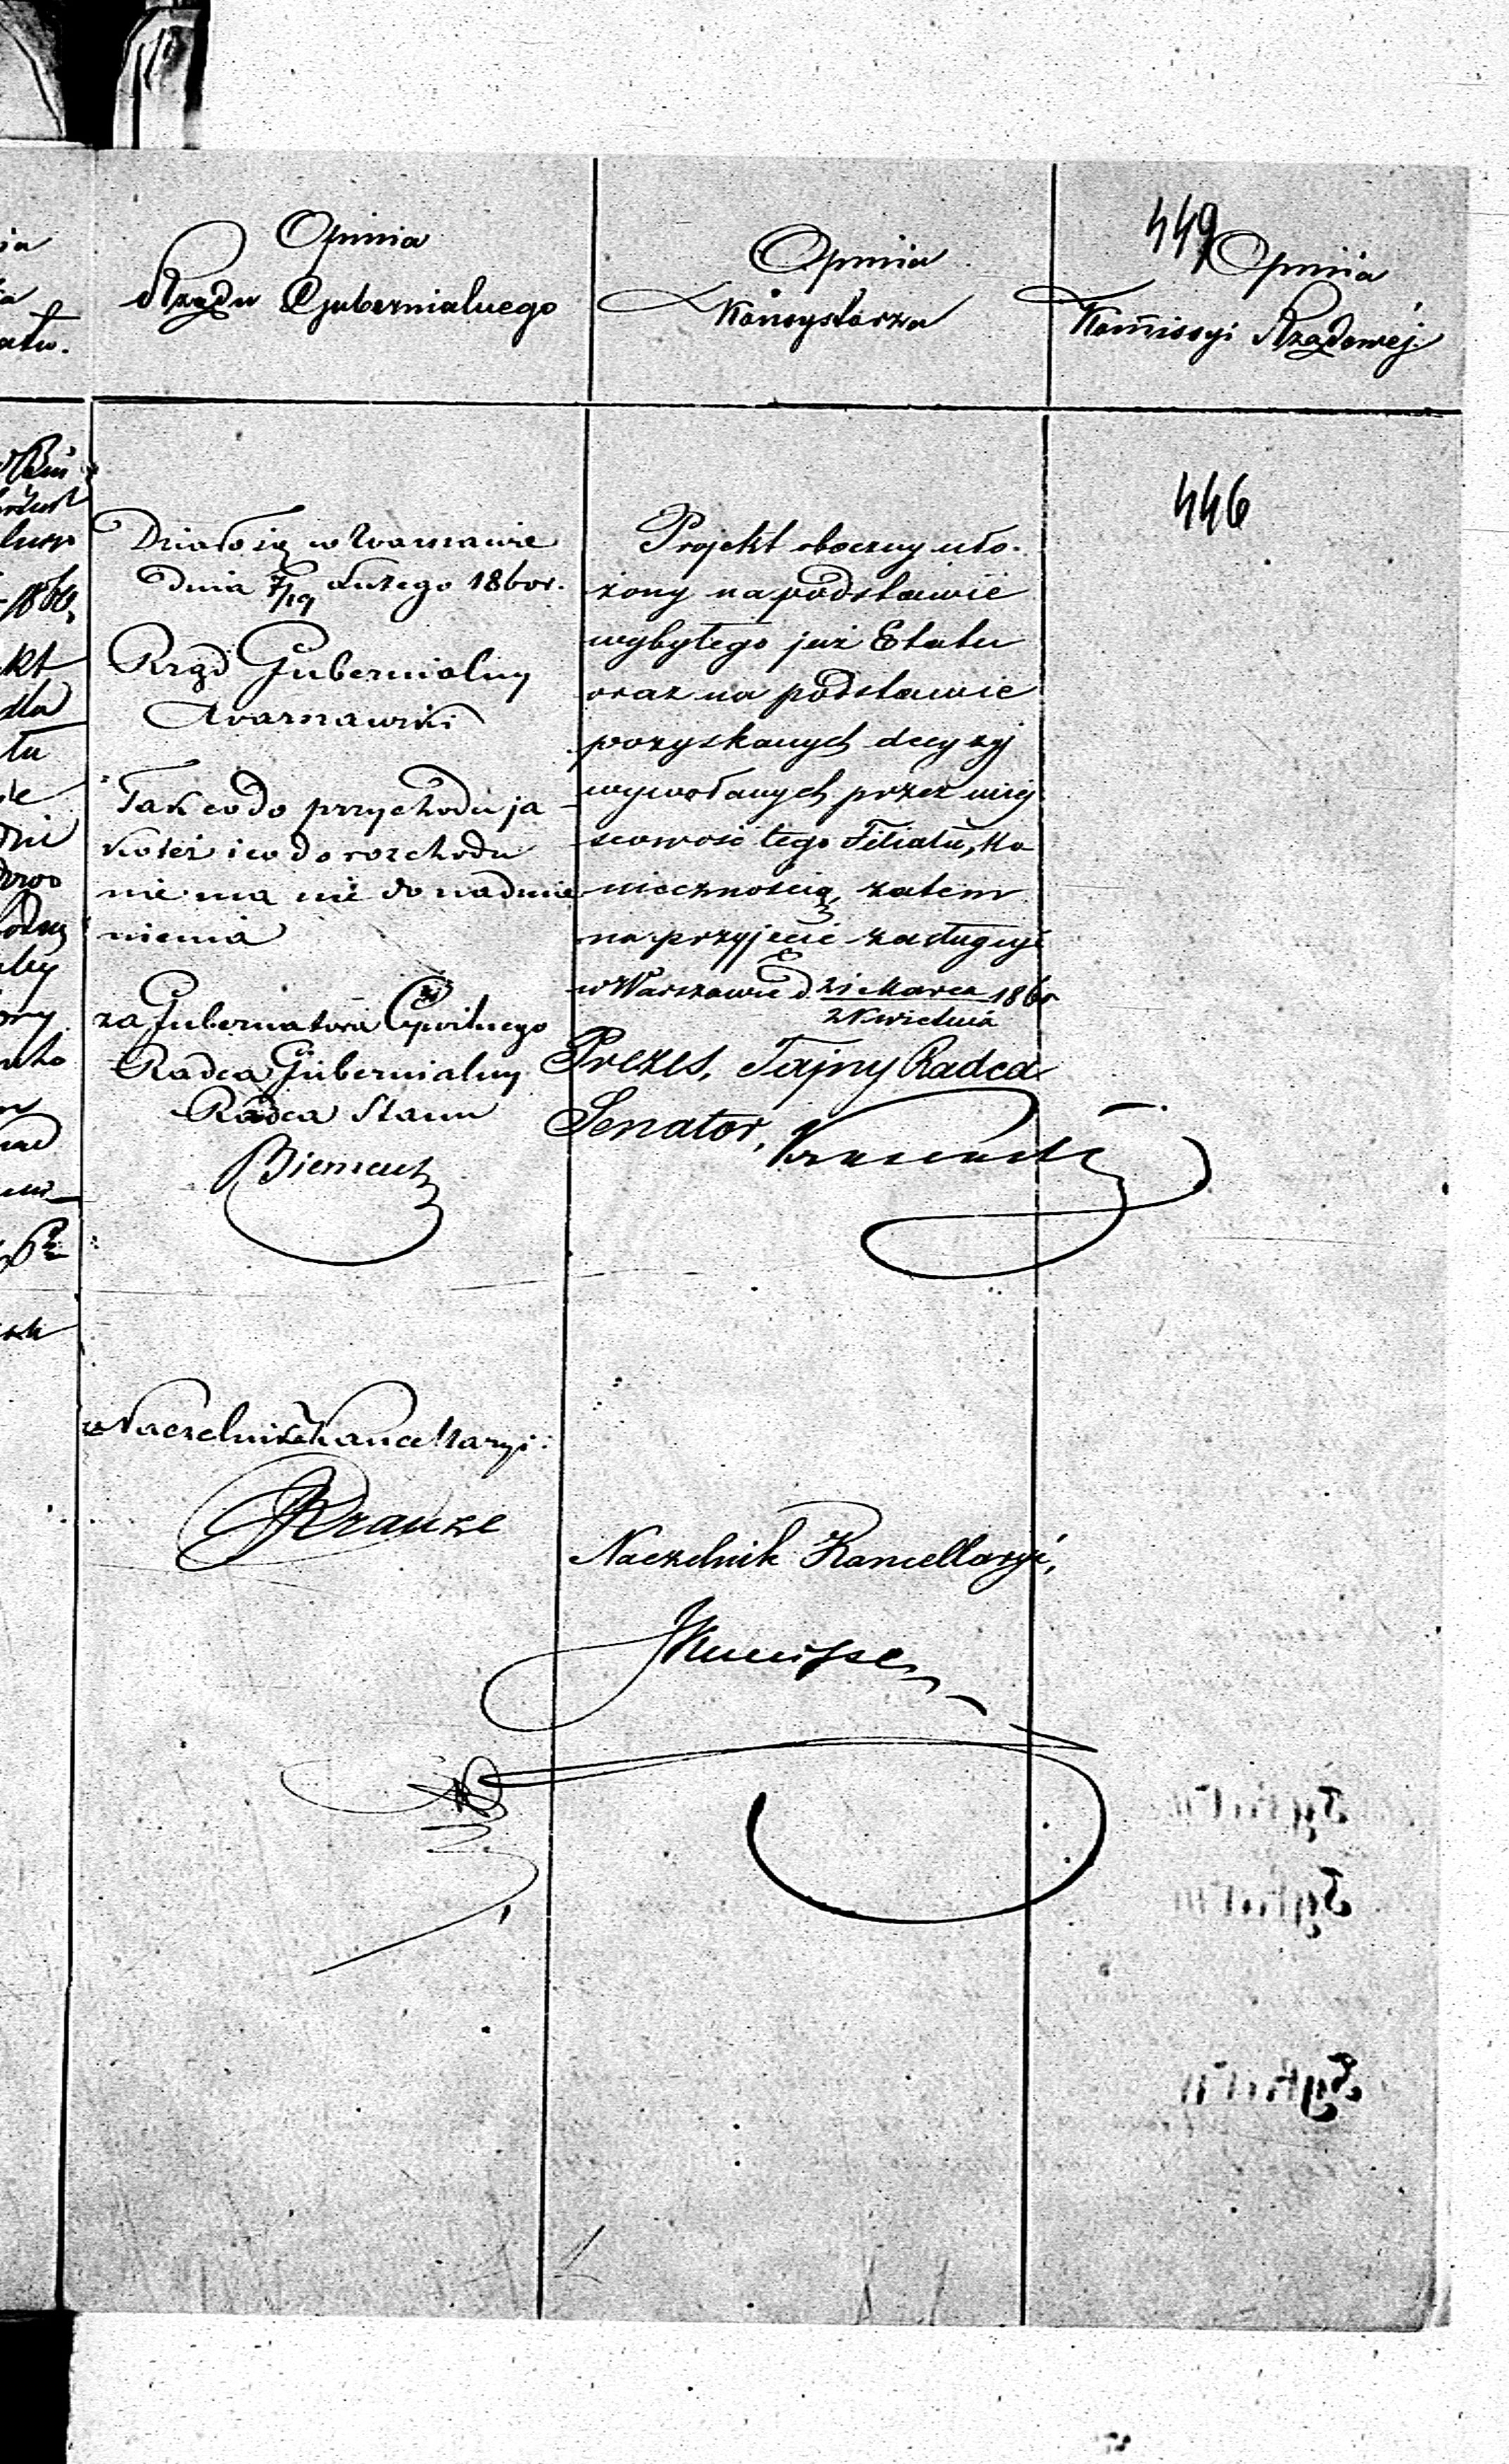 Opinia
Rządu Gubernialnego
Działo się w Warszawie
dnia 7/19 Lutego 1860 r.
Rząd Gubernialny
Warszawski
Tak co do przychodu ja
koteż i co do rozchodu
nie ma nic do nadmie
nienia
za Gubernatora Cywilnego
Radca Gubernialny
Radca Stanu
Naczelnik Kancellaryi:
Krauze
Opinia
Konsystorza
Projekt oboczny uło-
żony na podstawie
wybytego już Etatu
oraz na podstawie
pozyskanych decyzyj
wywołanych przez miej
scowość tego Filiału, Ko
niecznością, zatem
na przyjęcie zasługuje
w Warszawie d. 21 Marca 1860
2 Kwietnia
Prezes, Tajny Radca
Senator,
Naczelnik Kancellaryi,
449
Opinia
Kommissyi Rządowéj
446